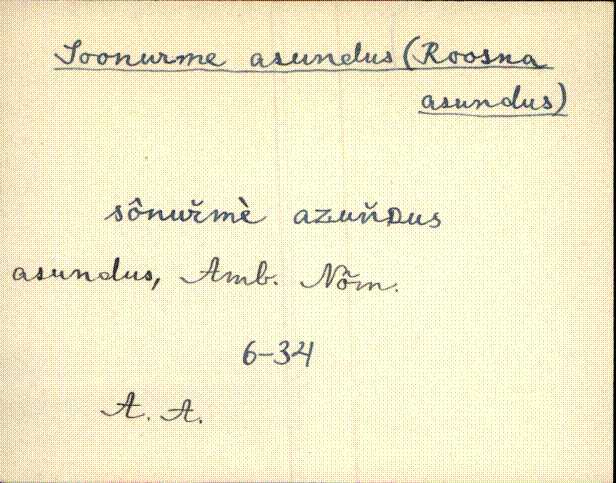 Soonurme asundus (Roosna
asundus)
sônuřmè azuňDus
asundus, Amb. Nõm.
6-34
A. A.